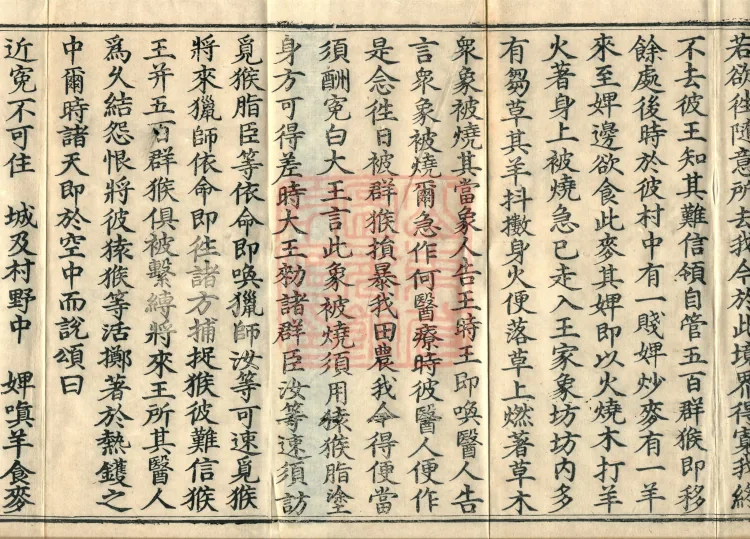 若欲往隨意所去我今於此境界得
不去彼王知其難信領自管五百群猴即移
餘處後時於彼村中有一賤婢炒麥有一羊
來至婢邊欲食此麥其婢即以火燒木打羊
火著身上被燒急已走入王家象坊坊內多
有蒭草其羊抖擻身火便落草上燃著草木
衆象被燒其當象人告王時王即喚醫人告
言衆象被燒爾急作何醫療時彼醫人便作
是念徃日被群猴損暴我田農我今得便當
須酬冤白大王言此象被燒須用猿猴脂塗
身方可得差時大王勑諸群臣汝等速須訪
覓猴脂臣等依命即喚獵師汝等可速覓猴
將來獵師依命即徃諸方捕捉猴彼難信猴
王并五百群猴俱被繫縛將來王所其醫人
爲久結怨恨將彼猿猴等活擲著於熱鑊之
中爾時諸天即於空中而說頌曰
近冤不可住　城及村野中　婢嗔羊食麥